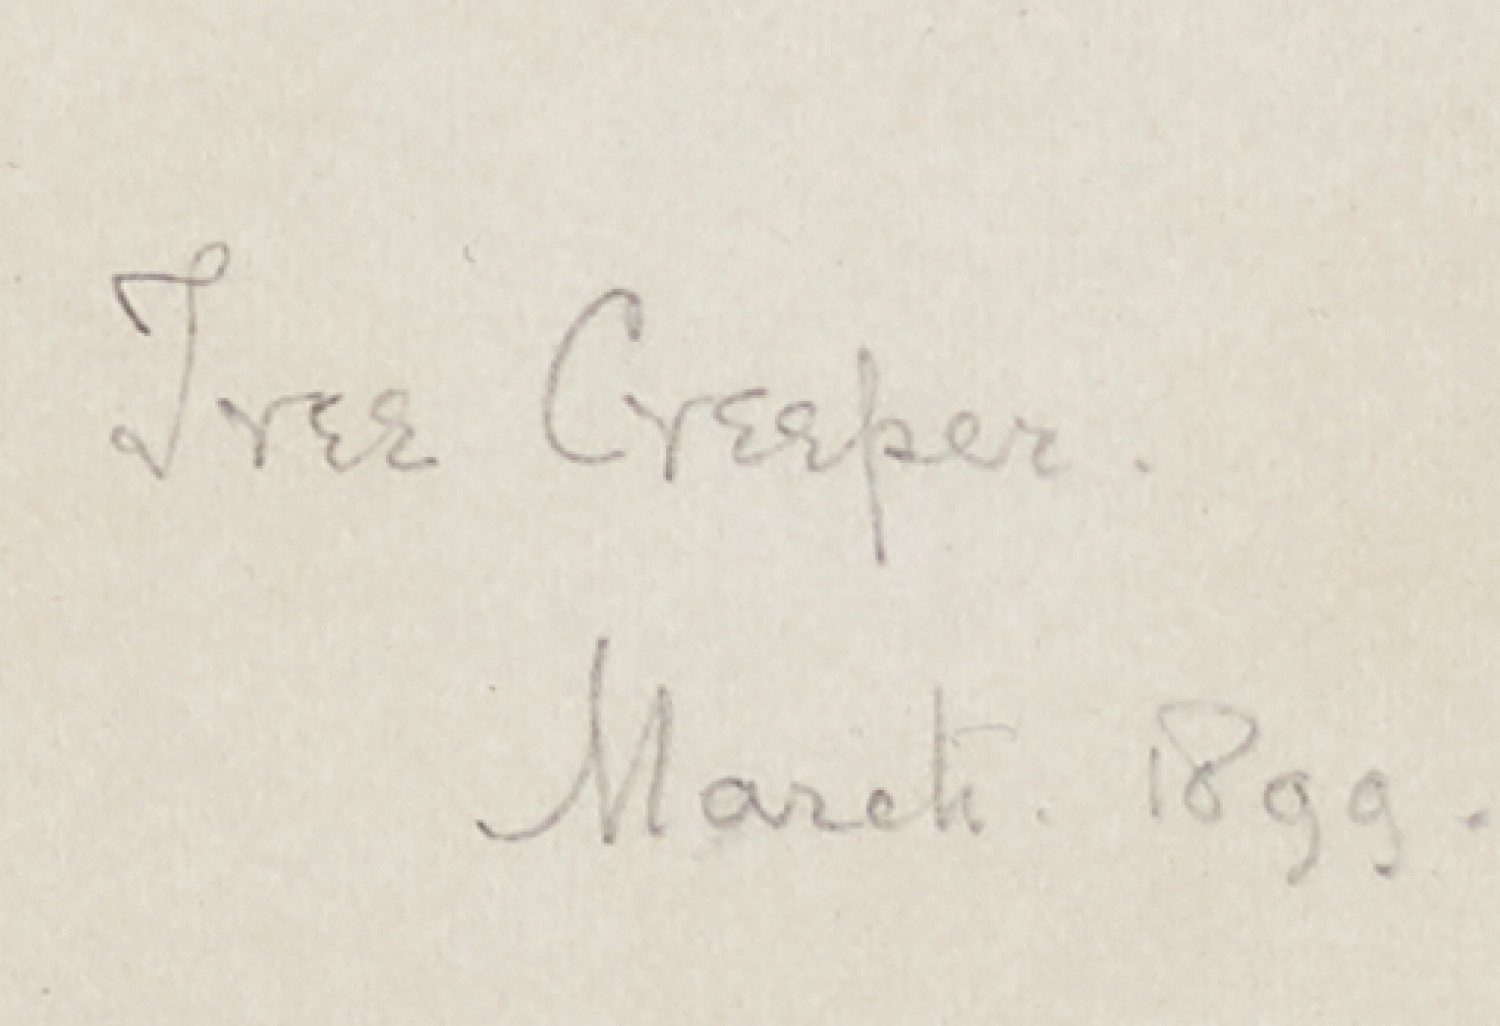 Tree Creeper.
March. 1899.